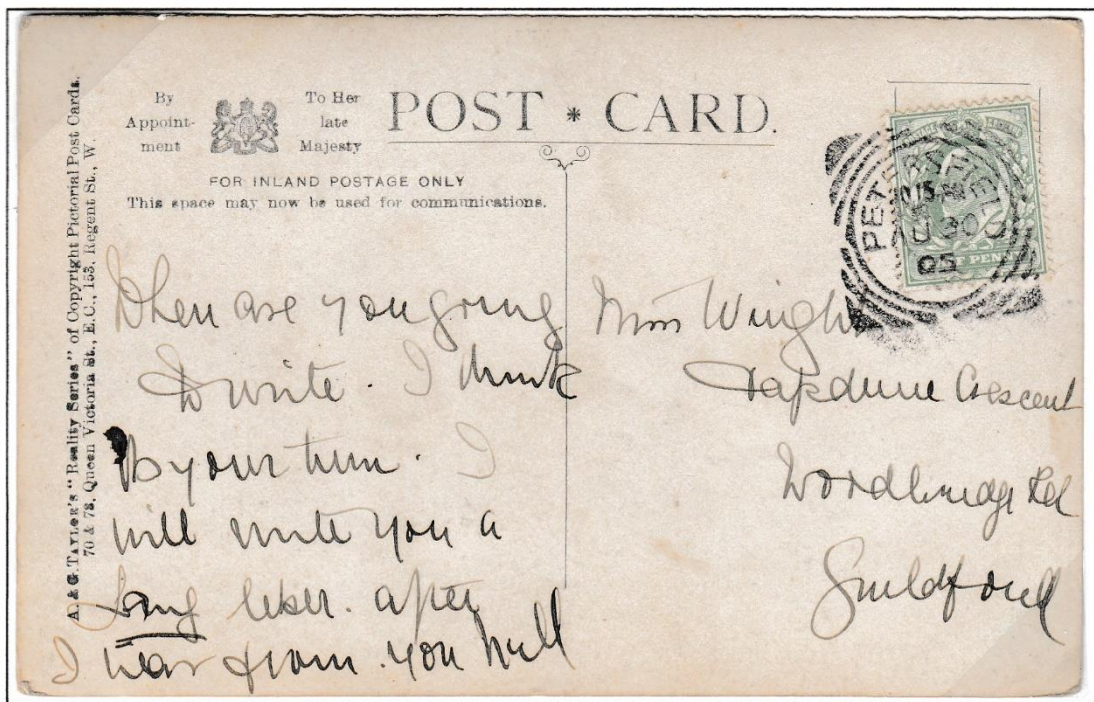 A. & G. TAYLOR'S "Reality Series" of Copyright Pictorial Post Cards.
70 & 78, Queen Victoria St., E.C., 153, Regent St., W.
By
Appoint-
ment
To Her
late
Majesty
POST * CARD.
FOR INLAND POSTAGE ONLY
This space may now be used for communications.
PETERSFIELD
AU 30
05
When are you going
to write. I think
its your turn. I
will write you a
Long letter. after
I hear from. you Nell
Miss Wright
Crescent
Woodbridge Rd
Guildford